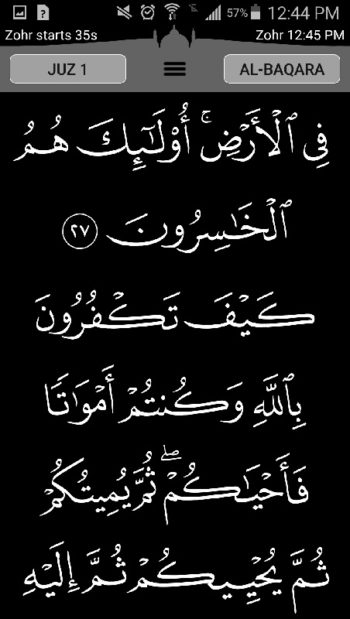 57% 12:44 PM
Zohr starts 35s Zohr 12:45 PM
JUZ 1 AL-BAQARA
فِي ٱلْأَرْضِۚ أُوْلَٰٓئِكَ هُمُ
ٱلْخَٰسِرُونَ ٢٧
كَيْفَ تَكْفُرُونَ
بِٱللَّهِ وَكُنتُمْ أَمْوَٰتًا
فَأَحْيَٰكُمْۖ ثُمَّ يُمِيتُكُمْ
ثُمَّ يُحْيِيكُمْ ثُمَّ إِلَيْهِ